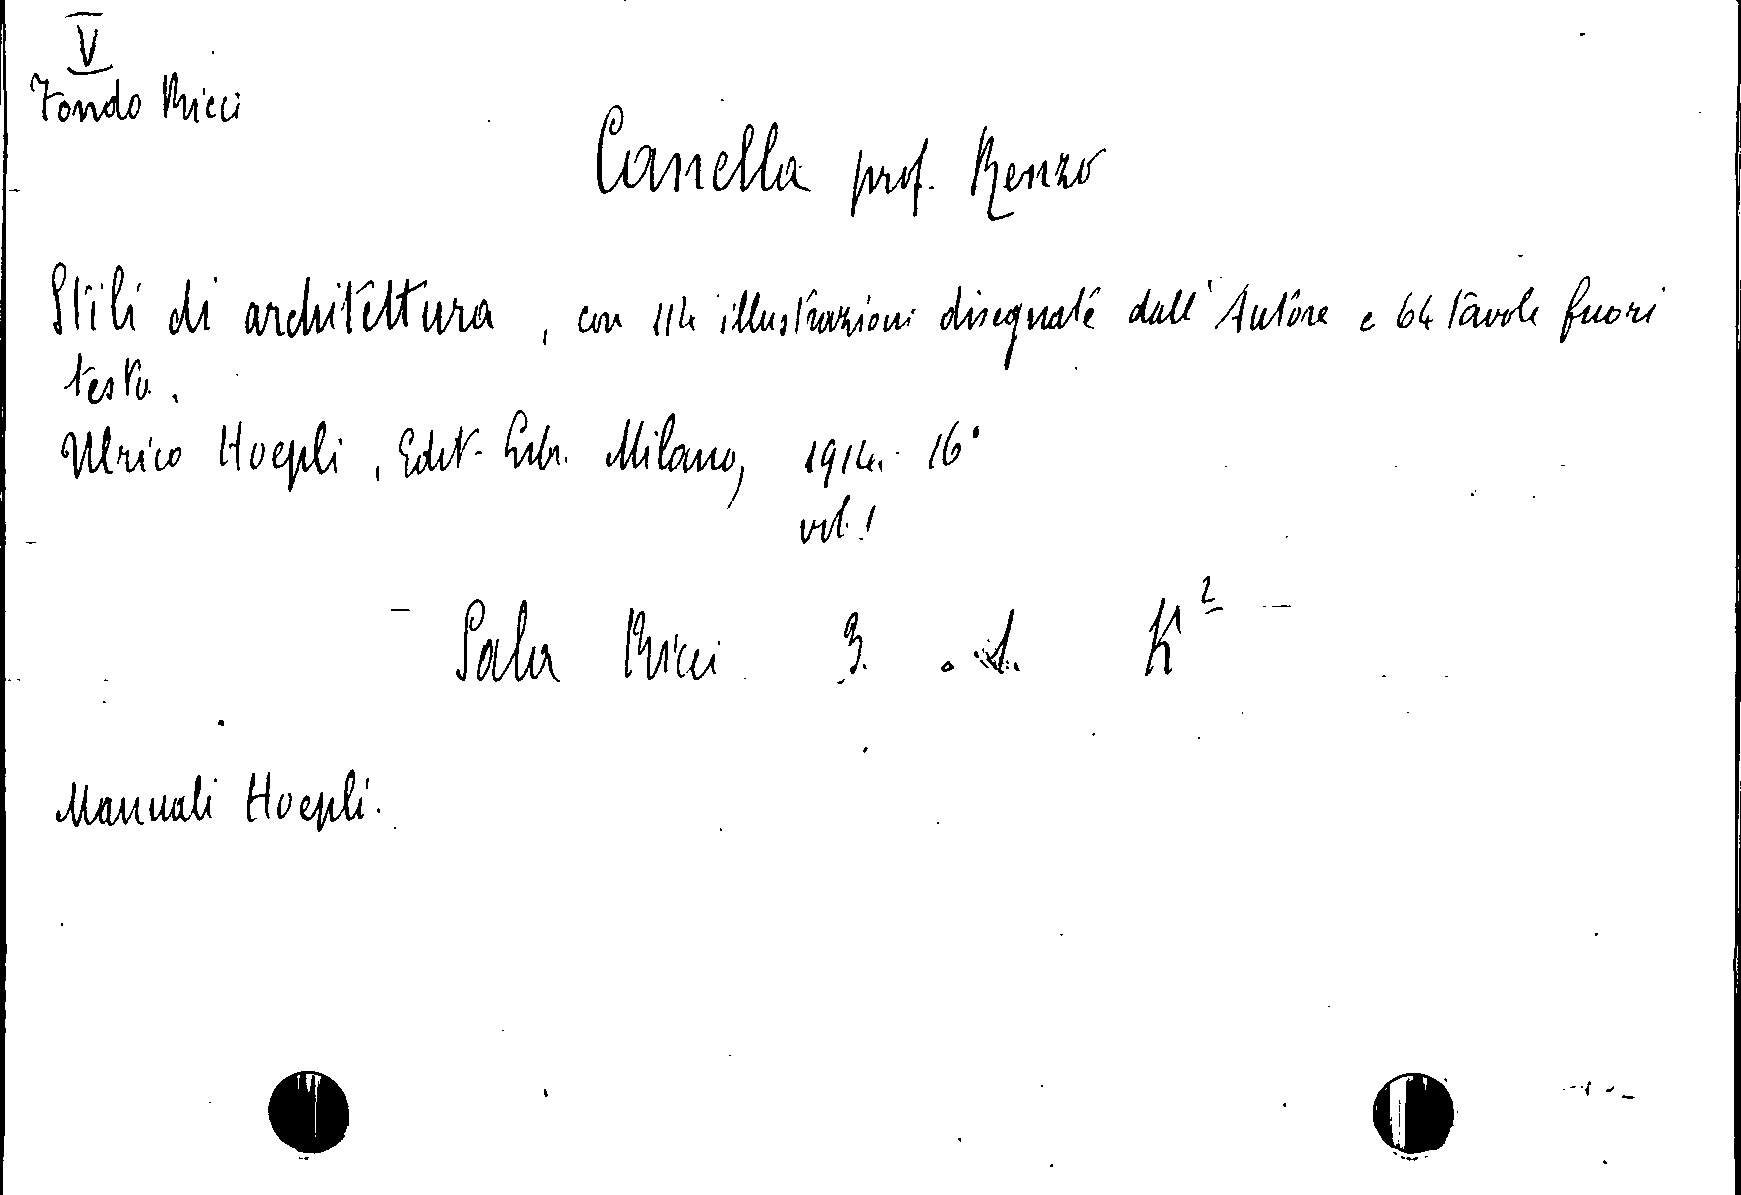 V
Fondo Ricci
Canella prof. Renzo
Stili di architettura, con 114 illustrazioni disegnate dall'Autore e 64 tavole fuori
testo.
Ulrico Hoepli, Edit. Libr. Milano, 1914. 16°
vol. 1
Sala Ricci 3. . K²
Manuali Hoepli.